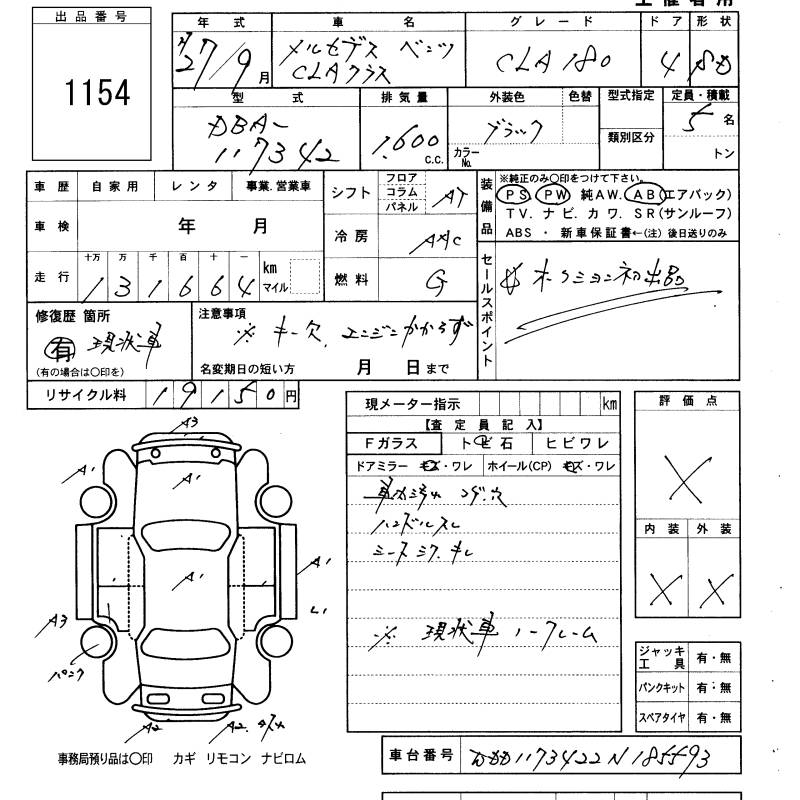 出品番号
1154
年式 車名 グレード ドア 形状
27/9月 メルセデス ベンツ CLA 180 4
CLAクラス
型式 排気量 外装色 色替 型式指定 定員・積載
DBA- 1,600 c.c. ブラック 5名
117342 カラーNo. 類別区分 トン
車歴 自家用 レンタ 事業.営業車
車検 年 月
走行 十万 万 千 百 十 一 km マイル
131664
シフト フロア コラム パネル AT
冷房 AAC
燃料 G
装備品
※純正のみ〇印をつけて下さい。
PS PW 純AW. AB(エアバック)
TV. ナビ. カワ. SR(サンルーフ)
ABS ・ 新車保証書←(注) 後日送りのみ
セールスポイント
オークション初出品
修復歴 箇所
有 現状車
(有の場合は〇印を)
注意事項
※ キー欠、エンジンかからず
名変期日の短い方 月 日まで
リサイクル料 19150円
現メーター指示 km
【査定員記入】
Fガラス トビ石 ヒビワレ
ドアミラー キズ・ワレ ホイール(CP) キズ・ワレ
車内汚れ コゲ穴
ハンドルスレ
シートシワ、キレ
※ 現状車 ノークレーム
評価点
X
内装 外装
X X
ジャッキ工具 有・無
パンクキット 有・無
スペアタイヤ 有・無
A3
A1
A1
A1
A1
L1
A3
パンク
A2
A2
事務局預り品は〇印 カギ リモコン ナビロム
車台番号 WDD1173422N185593